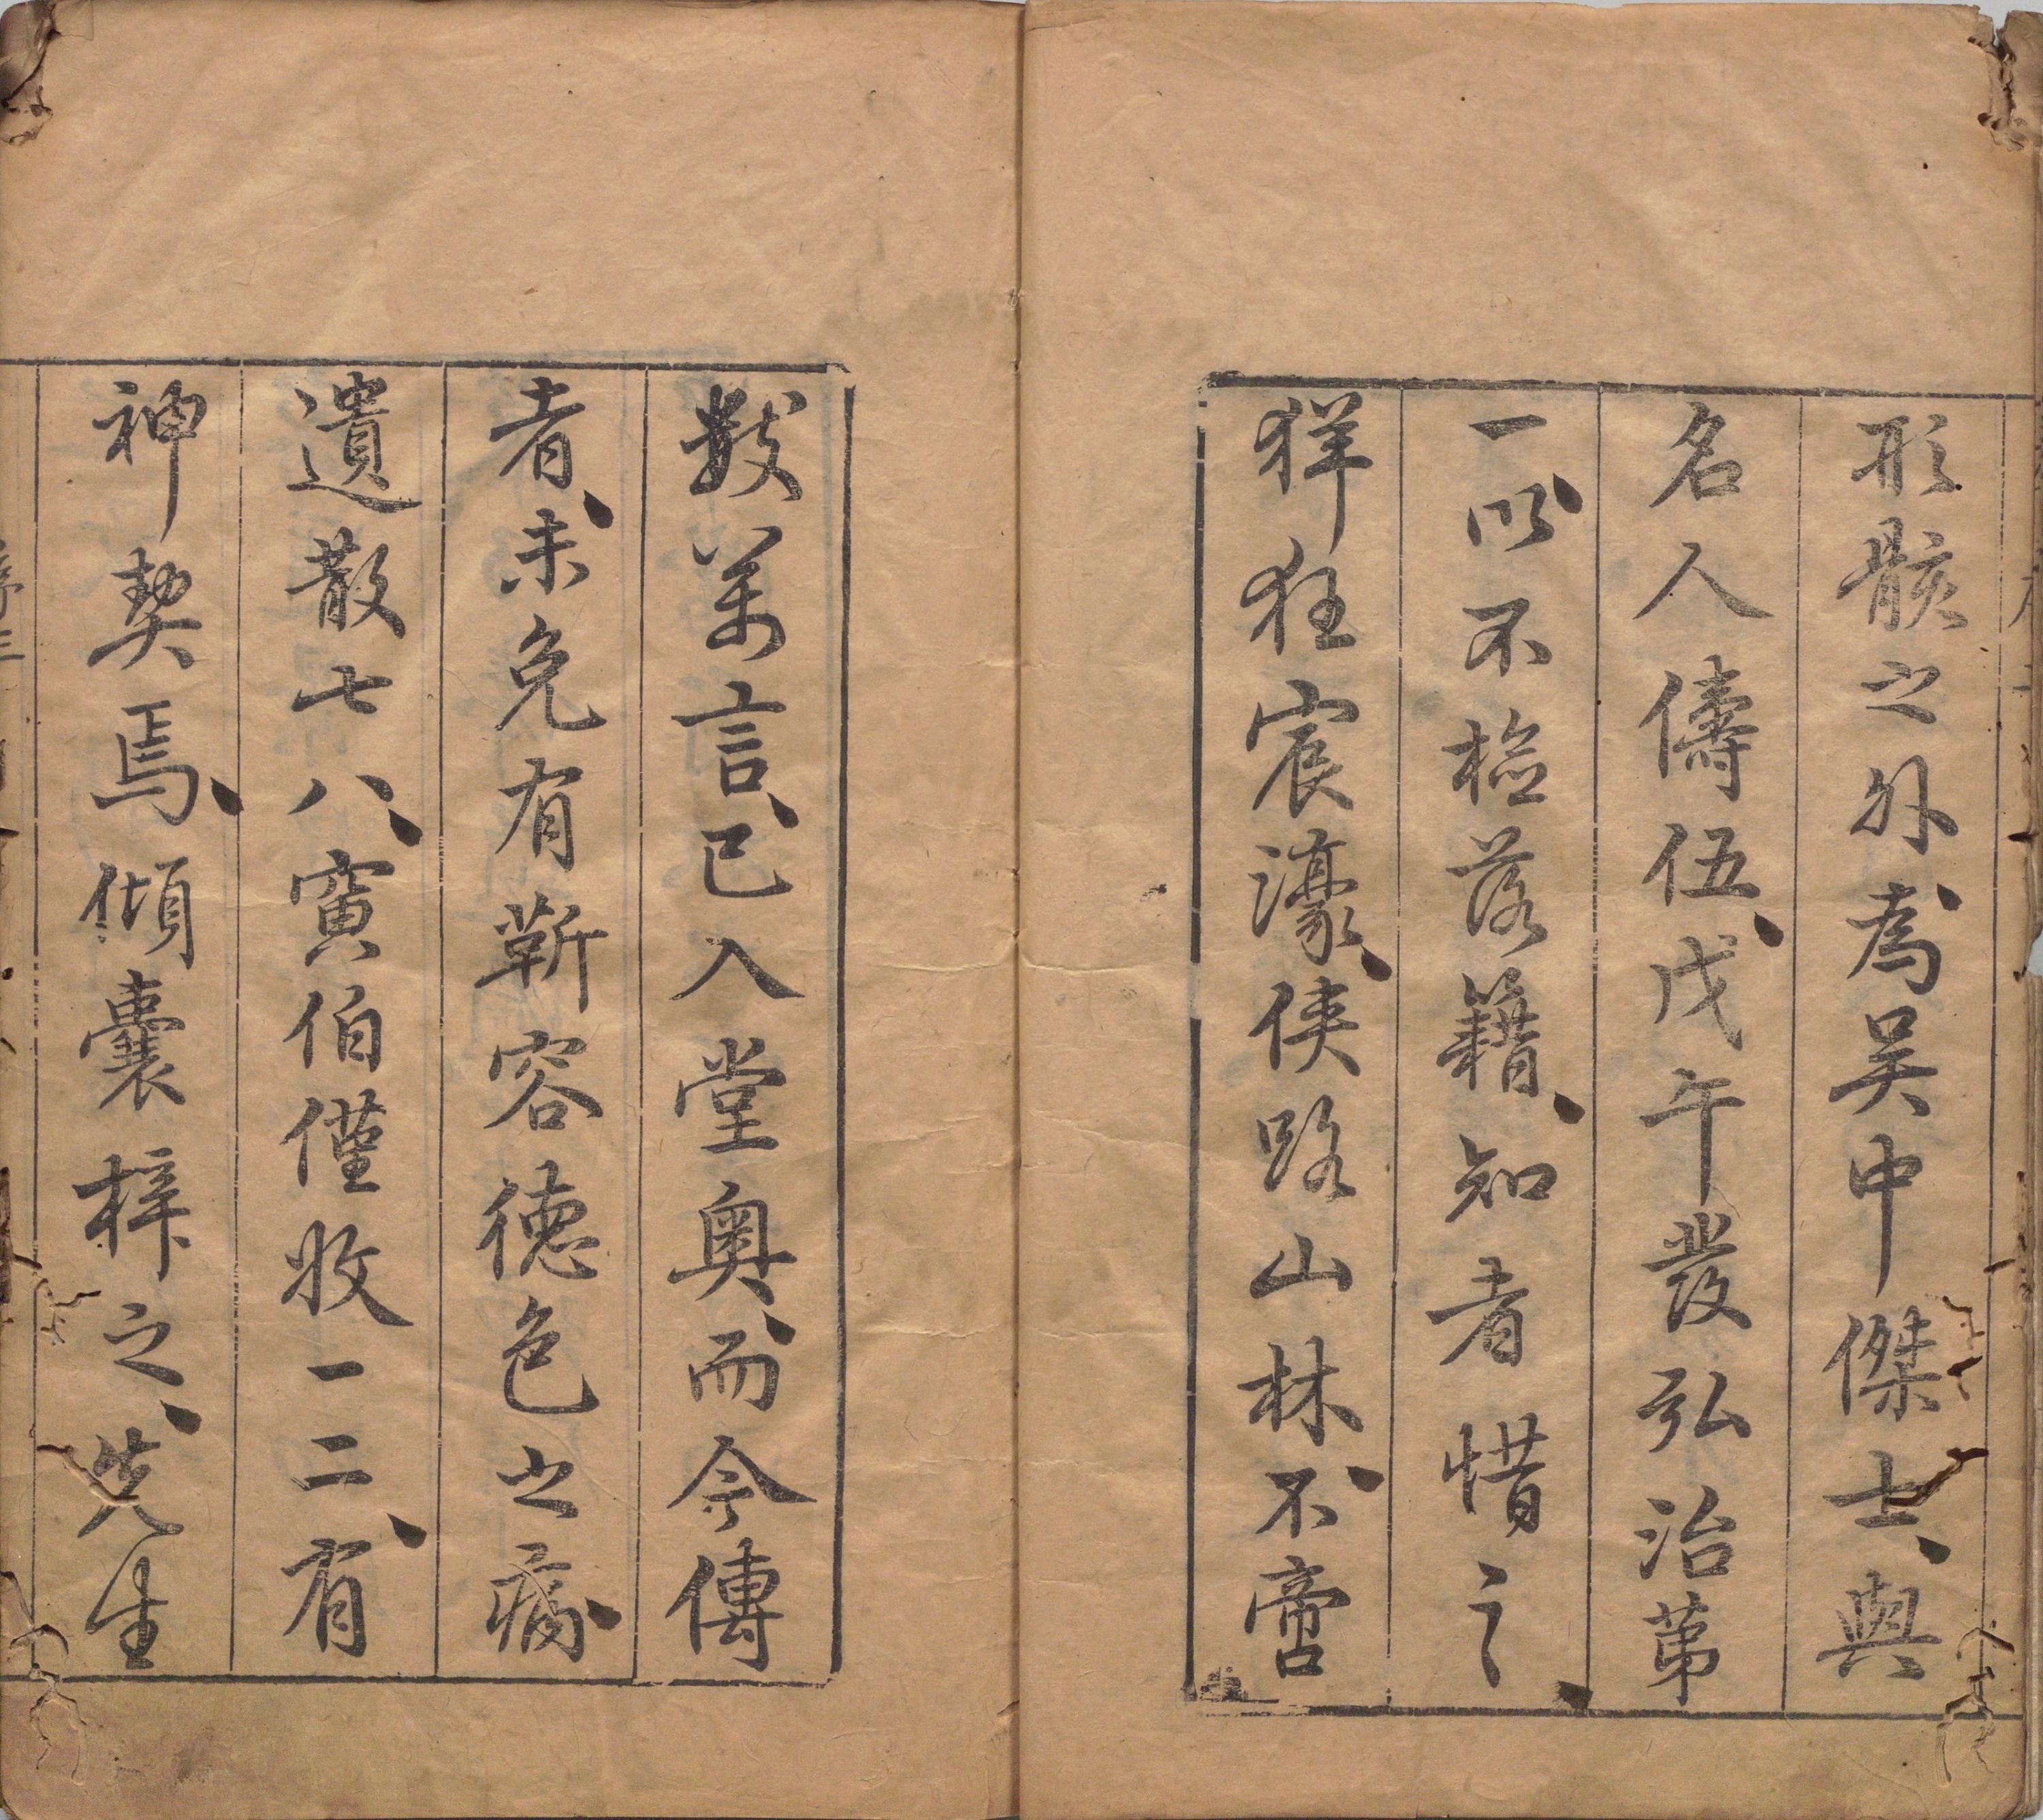 形骸之外、為吳中傑士、與
名人儔伍、戊午發弘治第
一、以不檢落籍、知者惜之、
佯狂宸濠、俠路山林、不啻
數萬言、已入堂奧、而今傳
者、未免有蘄容德色之痛、
遺散七八、寅伯僅收一二、有
神契焉、傾囊梓之、先生
序三